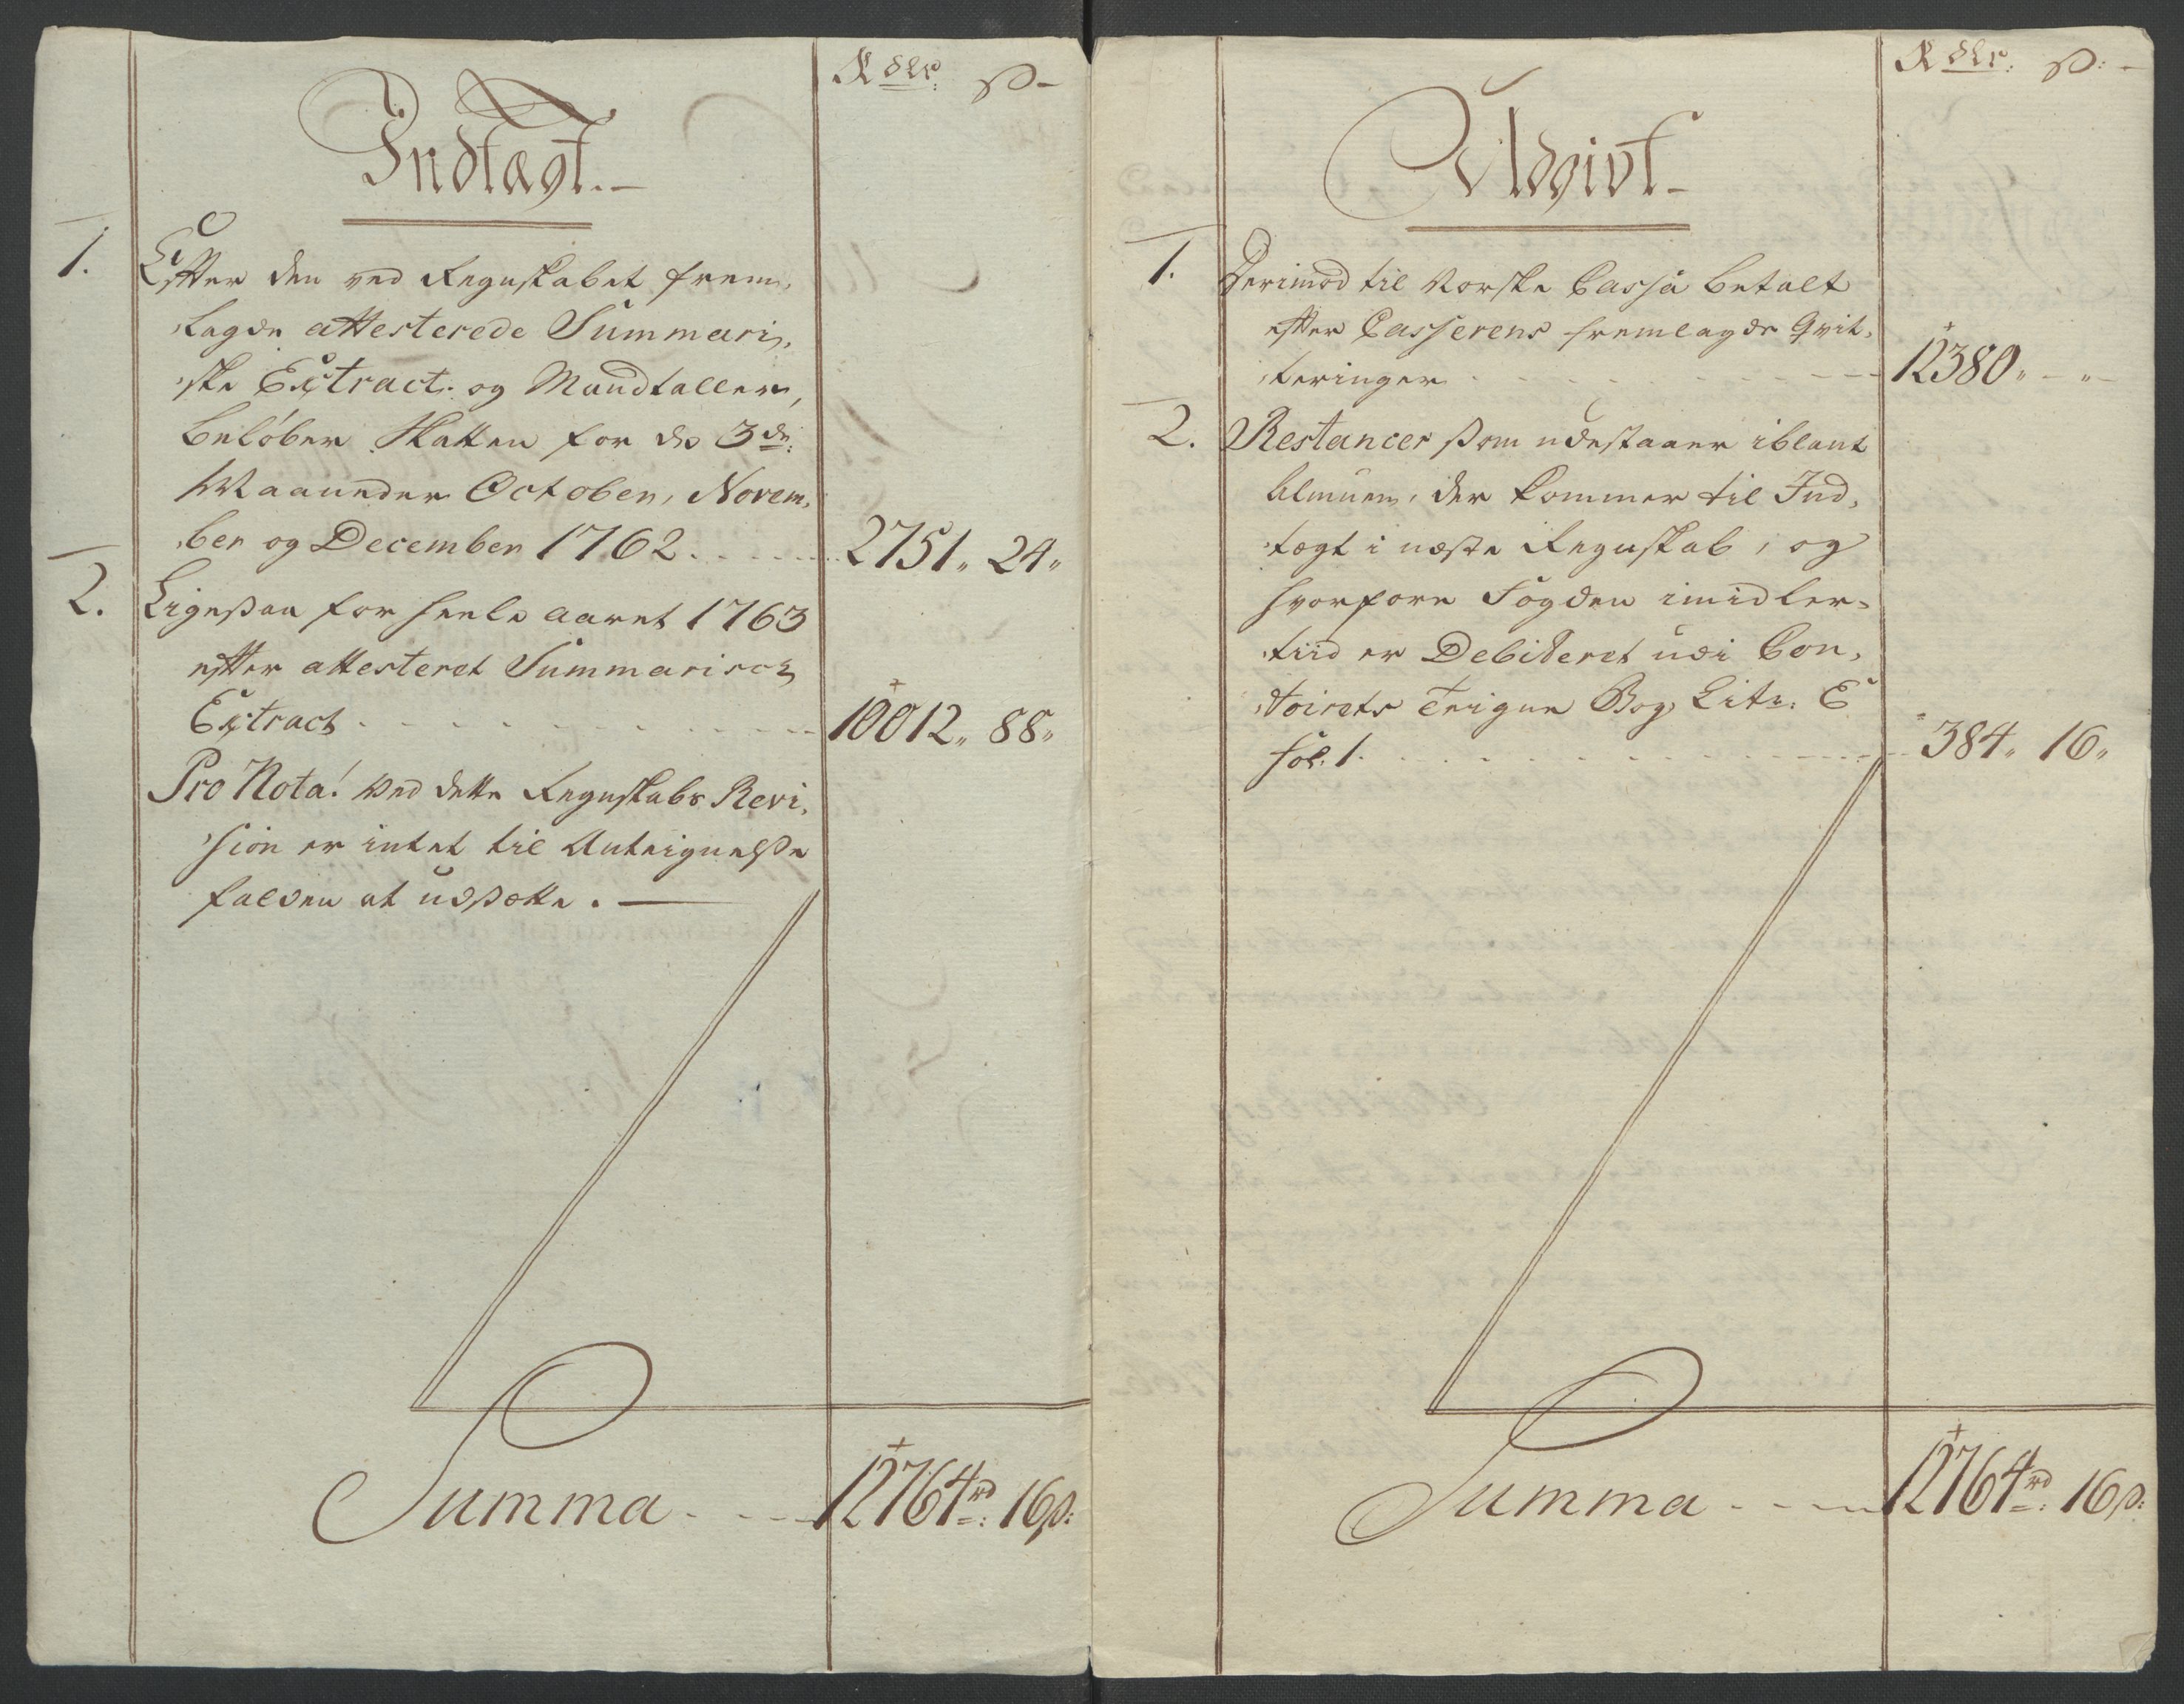 Rdlr: ß-
Indtægt.-
1. Efter den ved Regnskabet frem,
lagde attesterede Summari,
ske Extract. og Mandtaller,
beløber Skatten for de 3de:
Maaneder October, Novem,
ber og December 1762. . . . . . 2751" 24"
2. Ligesaa for heele aaret 1763
efter attesteret Summarisch
Extract . . . . . . . . . 10012" 88"
Pro Nota! Ved dette Regnskabs Revi,
sion er intet til Anteignelse
falden at udsætte. —
Summa . . . 12764rd: 16ß:
Rdlr: ß: -
Udgivt-
1. Derimod til Norske Cassa betalt
efter Casserens fremlagde Qvit,
teringer . . . . . . . . . 12380" - " -
2. Restancer som udestaaer iblant
Almuen, der kommer til Ind,
tægt i næste Regnskab, og
hvorfore Fogden imidler=
tiid er Debiteret udi Con,
toirets Bog Litr. E
fol: 1. . . . . . . . . . 384" 16"
Summa . . . 12764rd: 16ß: